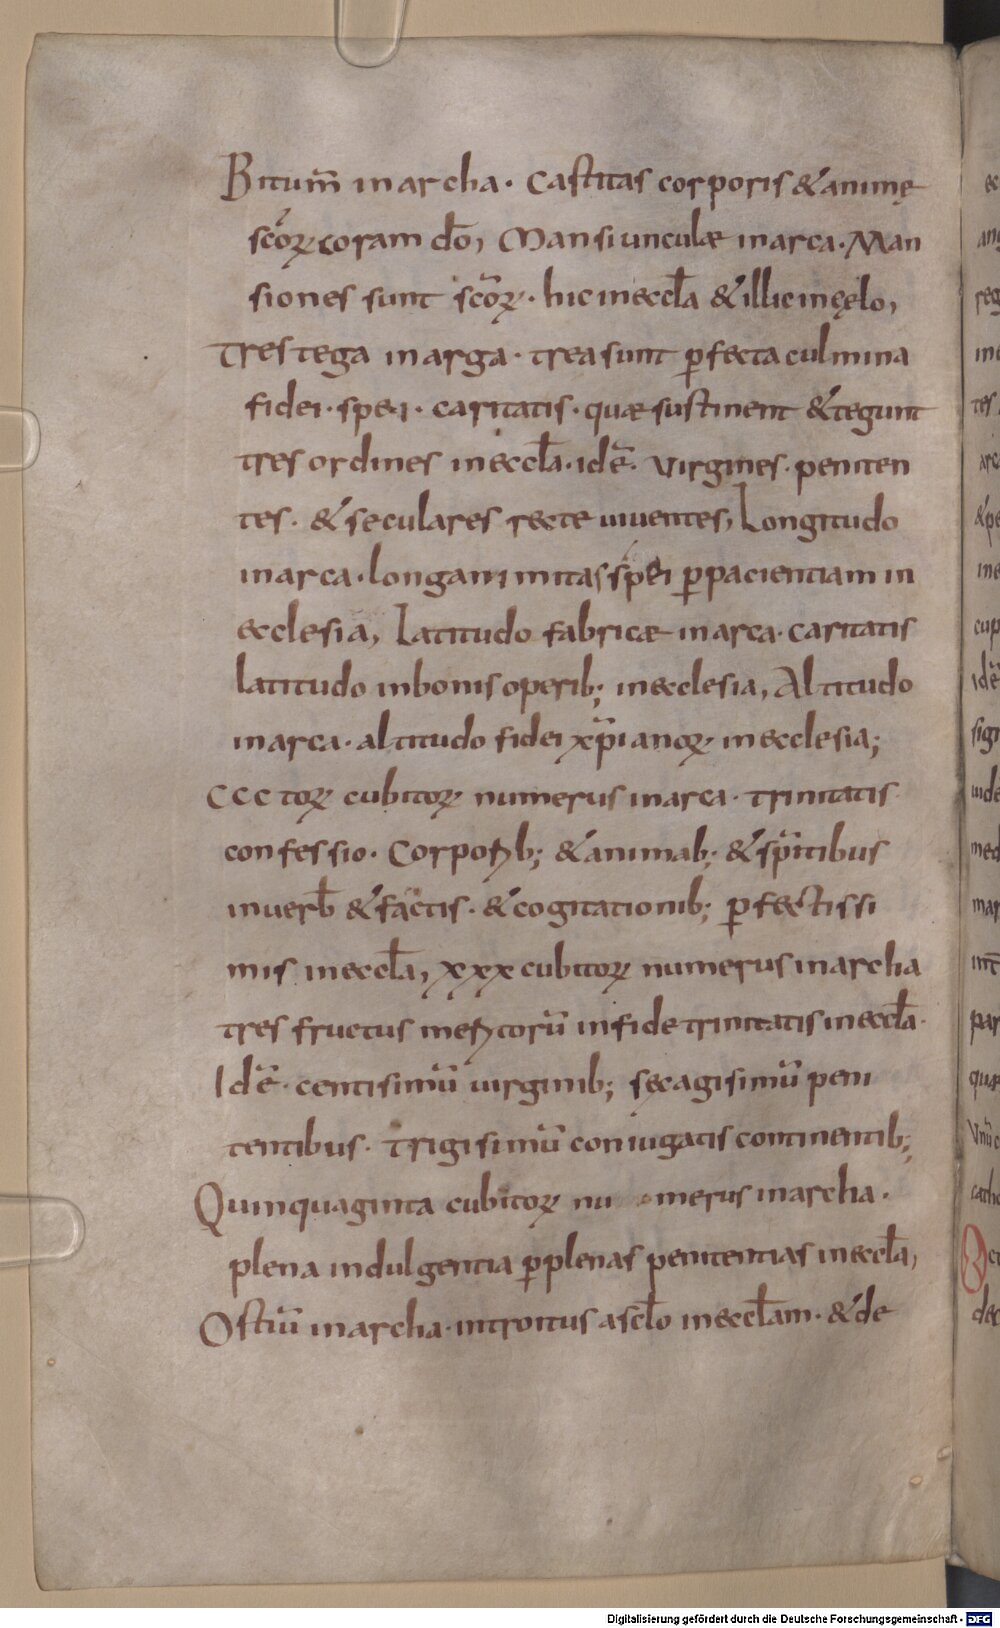 Bitum̅ in archa · Castitas corporis & animę
sc̅oꝝ coram d̅o, Mansiunculæ in arca · Man
siones sunt sc̅oꝝ · hic in eccl̅a & illic in cęlo,
Tres tega in arga · trea sunt ꝑfecta culmina
fidei · spei · caritatis · quæ sustinent & tegunt
tres ordines in eccl̅a · id e̅ · virgines · peniten
tes · & seculares recte viventes, Longitudo
in arca · longanimitas spei ꝑ pacientiam in
ecclesia, Latitudo fabricæ in arca · caritatis
latitudo in bonis operib; in ecclesia, Altitudo
in arca · altitudo fidei xp̅ianoꝝ in ecclesia;
CCC toꝝ cubitoꝝ numerus in arca · trinitatis
confessio · Corporib; & animab; & sp̅itibus
in verb̅ & factis · & cogitationib; ꝑfectissi
mis in eccl̅a, xxx cubitoꝝ numerus in archa
tres fructus meritoru̅ in fide trinitatis in eccl̅a ·
Id e̅ · centisimu̅ virginib; sęcagisimu̅ peni
tentibus · trigisimu̅ coniugatis continentib;
Quinquaginta cubitoꝝ nu merus in archa ·
plena indulgentia ꝑ plenas penitentias in eccl̅a,
Ostiu̅ in archa · introitus a scl̅o in eccl̅am · & de
Digitalisierung gefördert durch die Deutsche Forschungsgemeinschaft - DFG